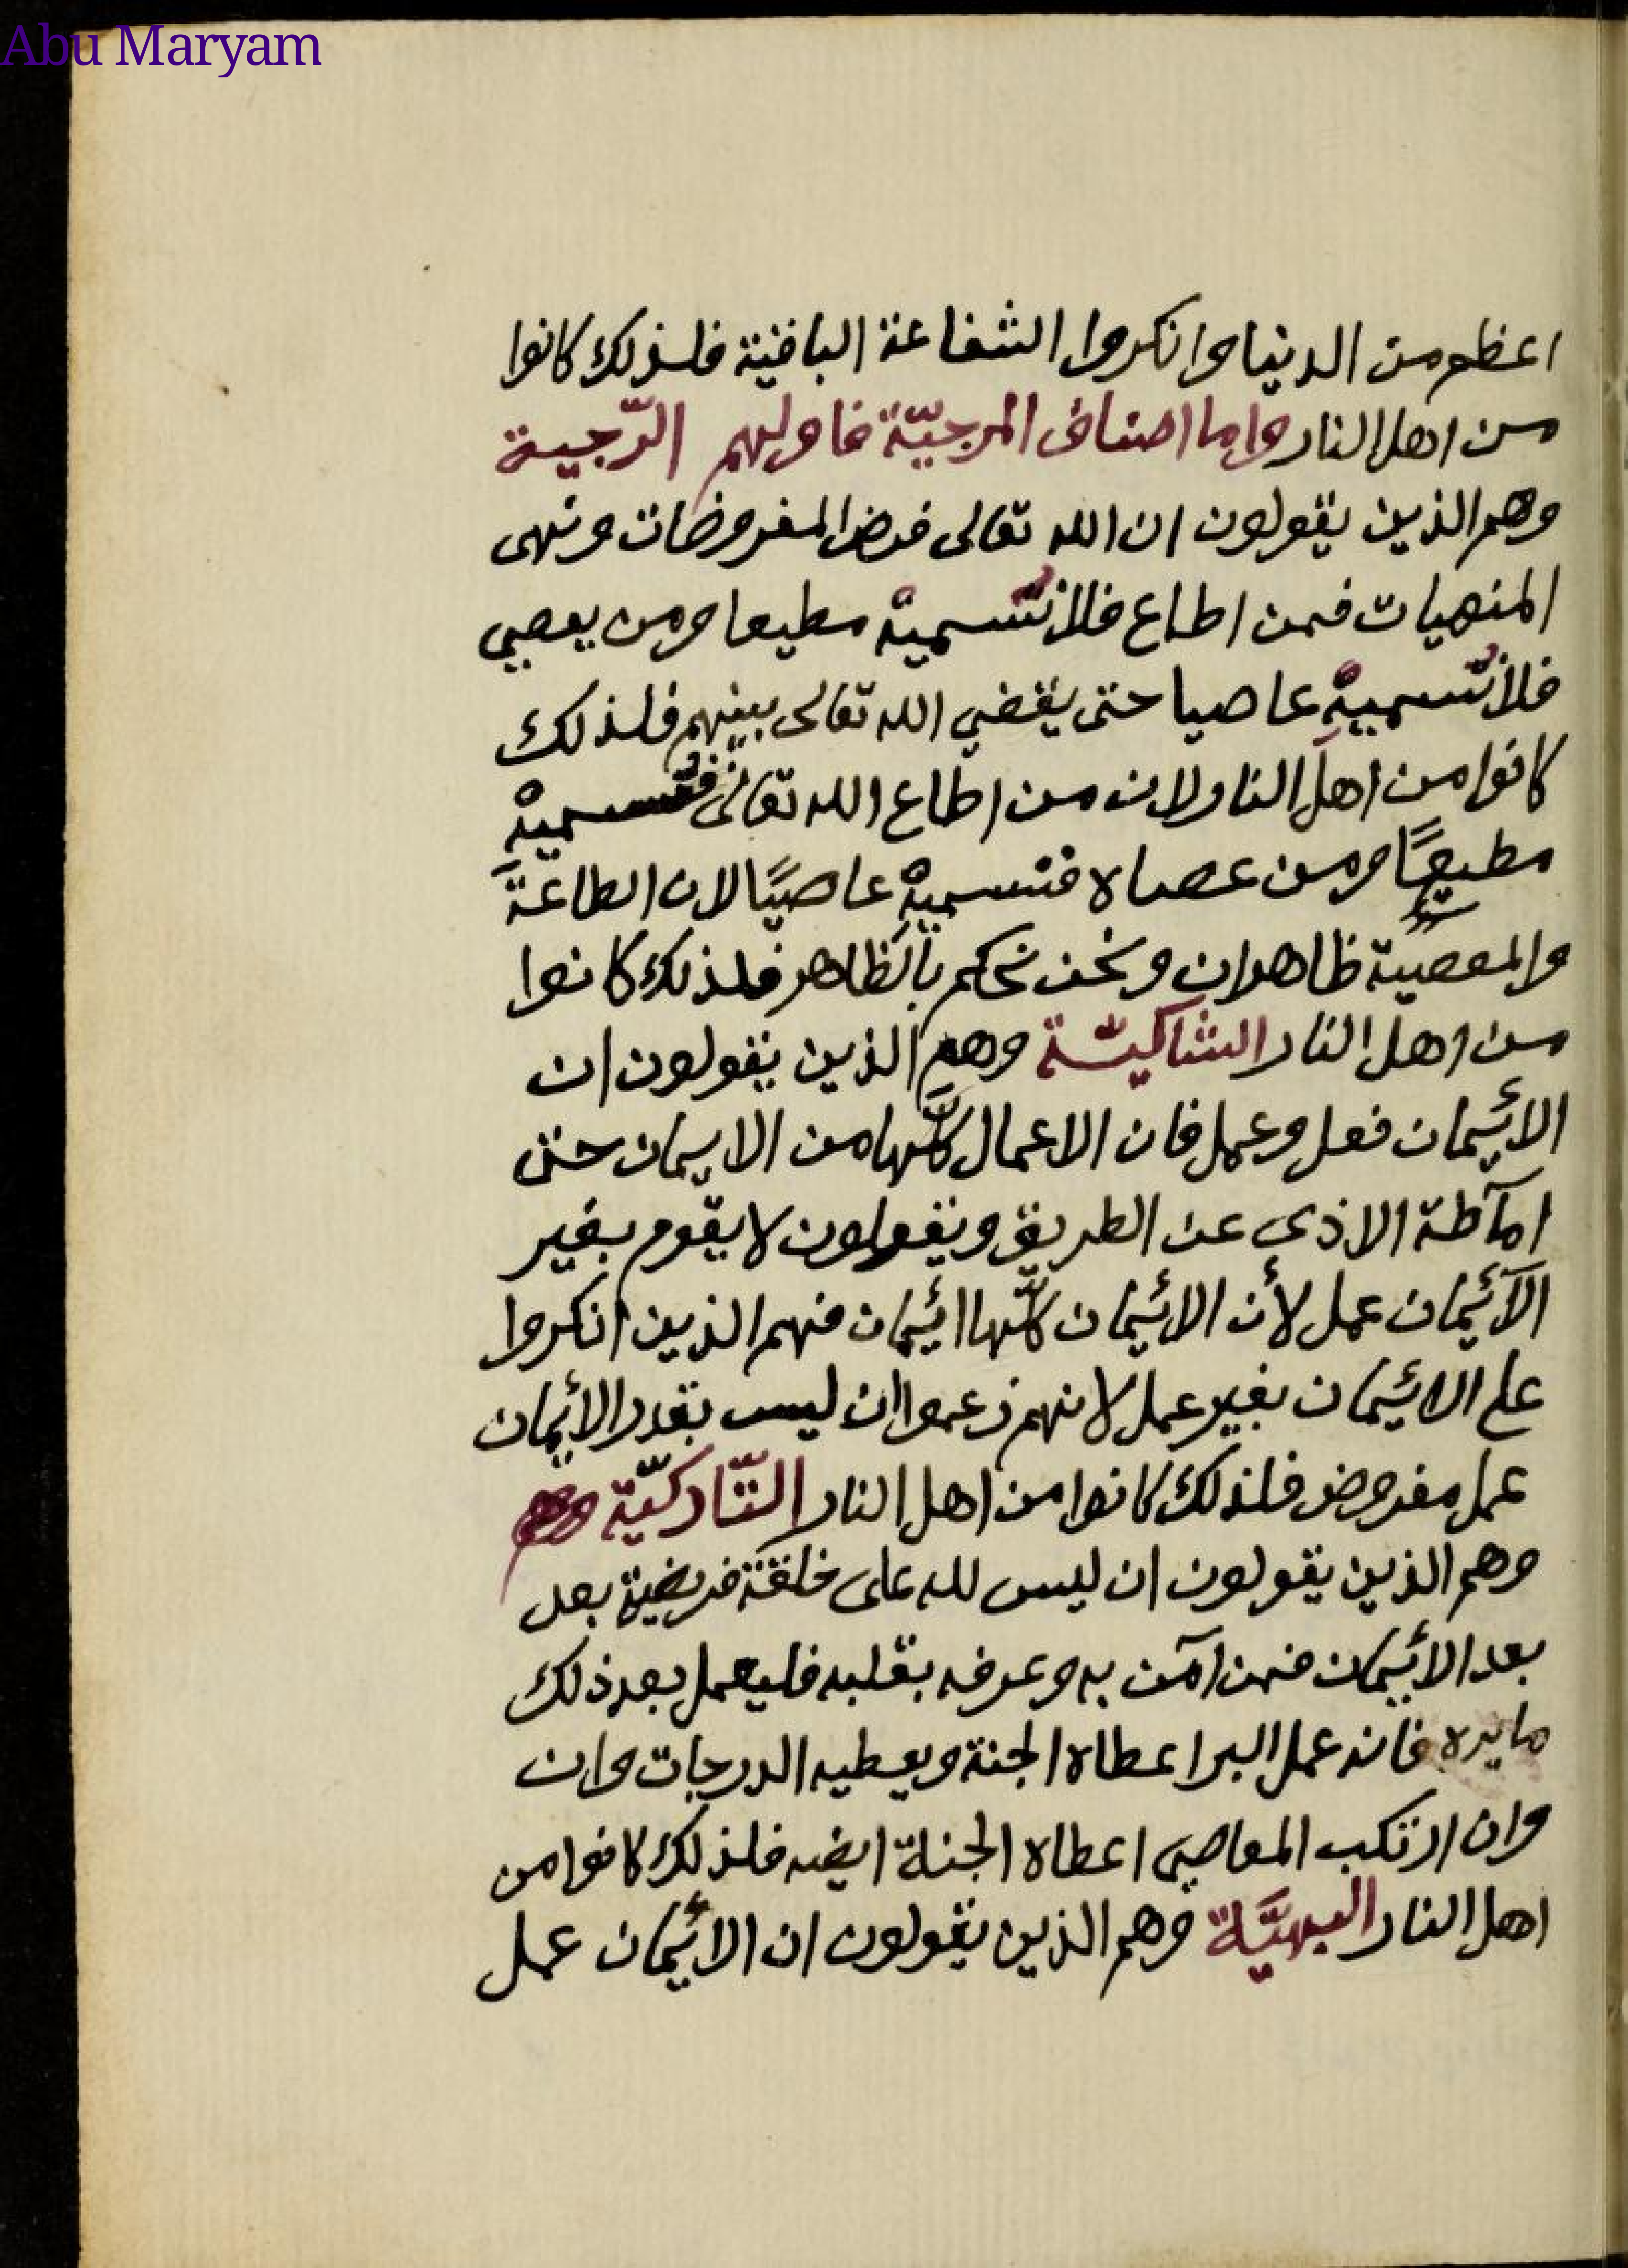 Abu Maryam
اعظم من الدنيا وانكروا الشفاعة الباقية فلذلك كانوا
من اهل النار واما اصناف المرجيّة فاولهم الرّجية
وهم الذين يقولون ان الله تعالى فرض المفروضات ونهى
المنهيات فمن اطاع فلا نسميهْ مطيعا ومن يعصي
فلا نسميهْ عاصيا حتى يقضي الله تعالى بينهم فلذلك
كانوا من اهل النار ولان من اطاع الله تعالى فنسميهْ
مطيعًا ومن عصاه فنسميهْ عاصيًا لان الطاعةَ
والمعصية ظاهران ونحن نحكم بالظاهر فلذلك كانوا
من اهل النار الشاكيّة وهم الذين يقولون ان
الائيمان فعل وعمل فان الاعمال كلّها من الايمان حتى
امآطة الاذى عن الطريق ويقولون لا يقوم بغير
الآئيمان عمل لأن الائيمان كلّها ائيمان فهم الذين انكروا
على الائيمان بغير عمل لانهم زعموا ان ليس بقدر الأيمان
عمل مفروض فلذلك كانوا من اهل النار التّاركيّة وهم
وهم الذين يقولون ان ليس لله على خلقة فريضية بعد
بعد الأئيمان فمن امآن به وعرفه بقلبه فليعمل بعد ذلك
ما يره فانه عمل البر اعطاه الجنة ويعطيه الدرجات وان
وان ارتكب المعاصي اعطاه الجنة ايضه فلذلك كانوا من
اهل النار البهيَّة وهم الذين يقولون ان الائيمان عمل